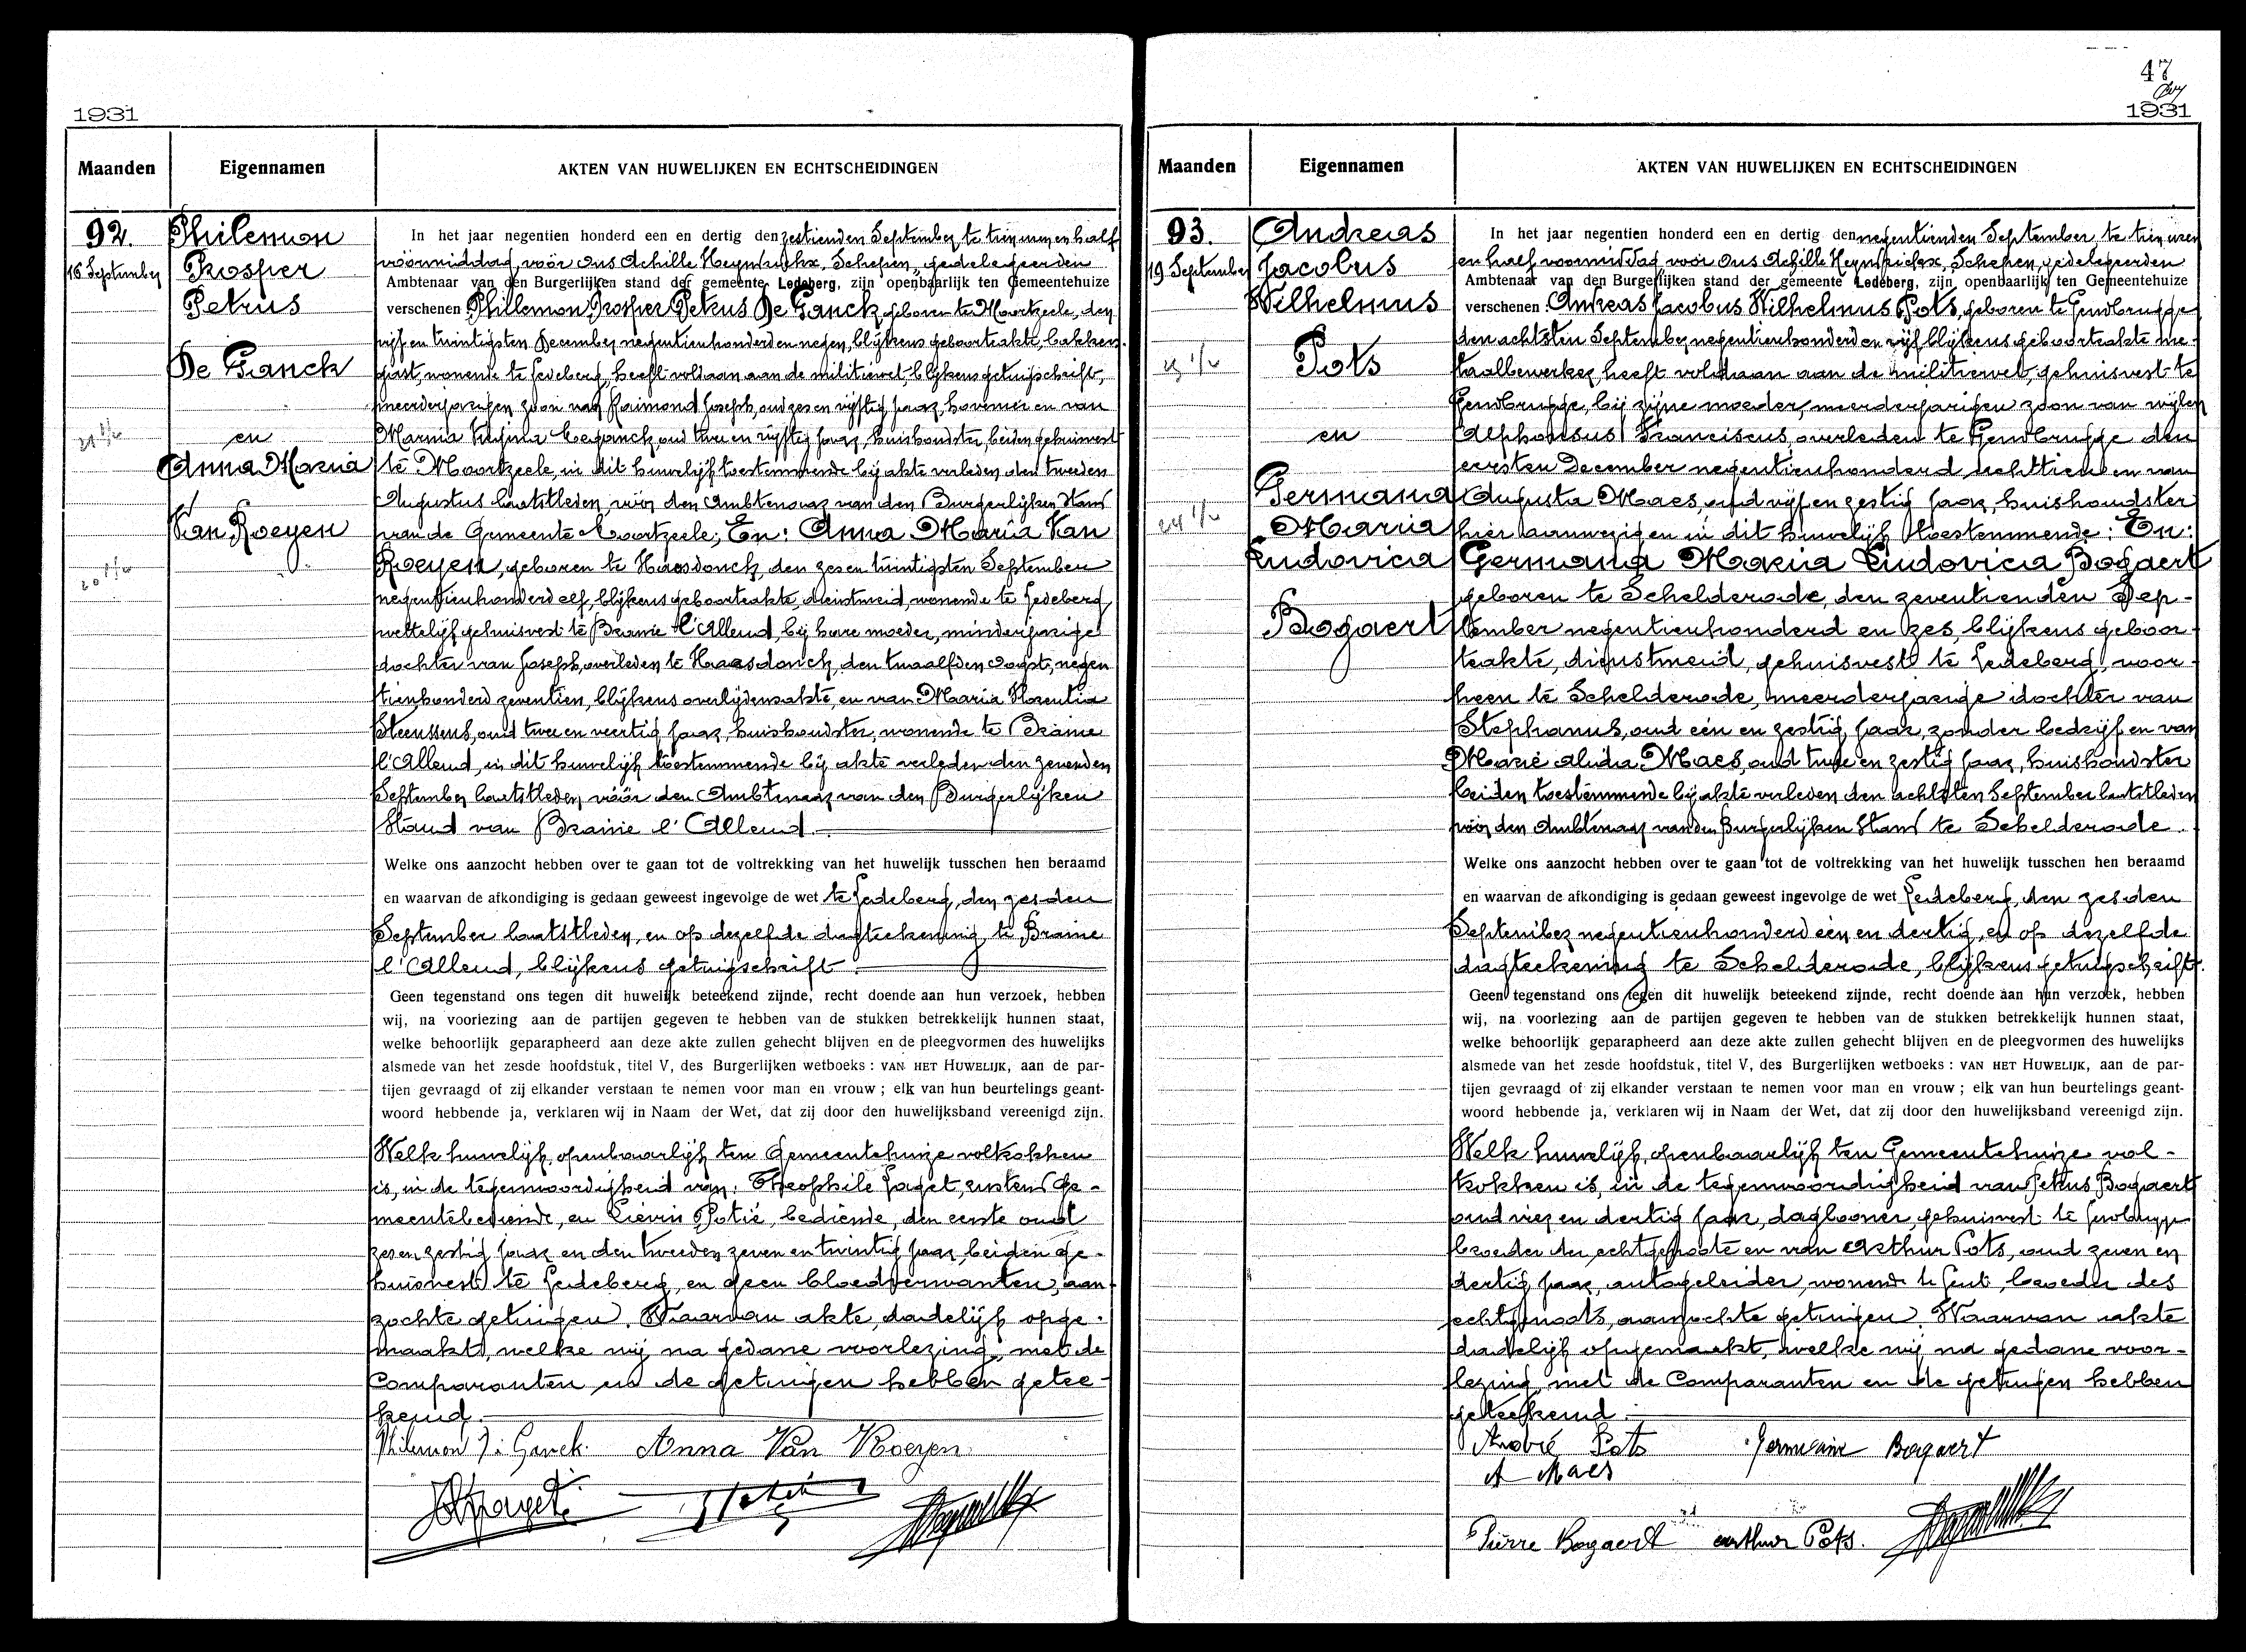 1931
Maanden
Eigennamen
AKTEN VAN HUWELIJKEN EN ECHTSCHEIDINGEN
92.
16 September
Philemon
Prosper
Petrus
De Ganck
en
Anna Maria
Van Roeyen
In het jaar negentien honderd een en dertig den zestienden September te tien uren en half
voormiddag, voor ons Achille Heyndrickx, Schepen, gedelegeerden
Ambtenaar van den Burgerlijken stand der gemeente Ledeberg, zijn openbaarlijk ten Gemeentehuize
verschenen Philemon Prosper Petrus De Ganck, geboren te Moortzeele, den
vijf en twintigsten December negentienhonderd en negen, blijkens geboorteakte, bakkers-
gast, wonende te Ledeberg, heeft voldaan aan de militiewet, blijkens getuigschrift,
meerderjarigen zoon van Raimond Joseph, oud zes en vijftig jaar, hovenier en van
Maria oud twee en vijftig jaar, huishoudster, beiden gehuisvest
te Moortzeele, in dit huwelijk toestemmende bij akte verleden den tweeden
Augustus laatstleden, vóór den Ambtenaar van den Burgerlijken Stand
van de Gemeente Moortzeele; En: Anna Maria Van
Roeyen, geboren te Haasdonck, den zes en twintigsten September
negentienhonderd elf, blijkens geboorteakte, dienstmeid, wonende te Ledeberg,
wettelijk gehuisvest te Braine l'Alleud, bij hare moeder, minderjarige
dochter van Joseph, overleden te Haasdonck, den twaalfden Oogst, negen
tienhonderd zeventien, blijkens overlijdensakte, en van Maria Florentia
Steenssens, oud twee en veertig jaar, huishoudster, wonende te Braine
l'Alleud, in dit huwelijk toestemmende bij akte verleden den zevenden
September laatstleden, vóór den Ambtenaar van den Burgerlijken
Stand van Braine l'Alleud.
Welke ons aanzocht hebben over te gaan tot de voltrekking van het huwelijk tusschen hen beraamd
en waarvan de afkondiging is gedaan geweest ingevolge de wet te Ledeberg, den zesden
September laatstleden, en op dezelfde dagteekening te Braine
l'Alleud, blijkens getuigschrift.
Geen tegenstand ons tegen dit huwelijk beteekend zijnde, recht doende aan hun verzoek, hebben
wij, na voorlezing aan de partijen gegeven te hebben van de stukken betrekkelijk hunnen staat,
welke behoorlijk geparapheerd aan deze akte zullen gehecht blijven en de pleegvormen des huwelijks
alsmede van het zesde hoofdstuk, titel V, des Burgerlijken wetboeks : VAN HET HUWELIJK, aan de par-
tijen gevraagd of zij elkander verstaan te nemen voor man en vrouw ; elk van hun beurtelings geant-
woord hebbende ja, verklaren wij in Naam der Wet, dat zij door den huwelijksband vereenigd zijn.
Welk huwelijk, openbaarlijk ten Gemeentehuize voltrokken
is, in de tegenwoordigheid van: Theophile Jaget, rustend ge-
meentebediende, en Lievin Potié, bediende, den eerste oud
zes en zestig jaar en den tweeden zeven en twintig jaar, beiden ge-
huisvest te Ledeberg, en geen bloedverwanten, aan-
zochte getuigen. Waarvan akte, dadelijk opge-
maakt, welke wij na gedane voorlezing, met de
Comparanten en de getuigen hebben getee-
kend.
Philemon D. Ganck. Anna Van Roeyen
47
1931
Maanden
Eigennamen
AKTEN VAN HUWELIJKEN EN ECHTSCHEIDINGEN
93.
19 September
Andreas
Jacobus
Wilhelmus
Pots
en
Germana
Maria
Ludovica
Bogaert
In het jaar negentien honderd een en dertig den negentienden September, te tien uren
en half voormiddag voor ons Achille Heyndrickx, Schepen, gedelegeerden
Ambtenaar van den Burgerlijken stand der gemeente Ledeberg, zijn openbaarlijk ten Gemeentehuize
verschenen: Andreas Jacobus Wilhelmus Pots, geboren te Gendbrugge
den achtsten September negentienhonderd en vijf blijkens geboorteakte me-
taalbewerker heeft voldaan aan de militiewet, gehuisvest te
Gendbrugge, bij zijne moeder, meerderjarigen zoon van wijlen
Alphonsus Franciscus, overleden te Gendbrugge den
eersten December negentienhonderd achttien en van
Augusta Maes, oud vijf en zestig jaar, huishoudster
hier aanwezig en in dit huwelijk toestemmende: En:
Germana Maria Ludovica Bogaert
geboren te Schelderode, den zeventienden Sep-
tember negentienhonderd en zes, blijkens geboor-
teakte, dienstmeid, gehuisvest te Ledeberg, voor-
heen te Schelderode, meerderjarige dochter van
Stephanus, oud één en zestig jaar, zonder bedrijf en van
Marie Maes, oud twee en zestig jaar, huishoudster
beiden toestemmende bij akte verleden den achtsten September laatstleden
vóór den Ambtenaar van den Burgerlijken Stand te Schelderode.
Welke ons aanzocht hebben over te gaan tot de voltrekking van het huwelijk tusschen hen beraamd
en waarvan de afkondiging is gedaan geweest ingevolge de wet Ledeberg, den zesden
September negentienhonderd één en dertig, en op dezelfde
dagteekening te Schelderode, blijkens getuigschrift.
Geen tegenstand ons tegen dit huwelijk beteekend zijnde, recht doende aan hun verzoek, hebben
wij, na voorlezing aan de partijen gegeven te hebben van de stukken betrekkelijk hunnen staat,
welke behoorlijk geparapheerd aan deze akte zullen gehecht blijven en de pleegvormen des huwelijks
alsmede van het zesde hoofdstuk, titel V, des Burgerlijken wetboeks : VAN HET HUWELIJK, aan de par-
tijen gevraagd of zij elkander verstaan te nemen voor man en vrouw ; elk van hun beurtelings geant-
woord hebbende ja, verklaren wij in Naam der Wet, dat zij door den huwelijksband vereenigd zijn.
Welk huwelijk, openbaarlijk ten Gemeentehuize vol-
trokken is, in de tegenwoordigheid van Petrus Bogaert
oud vier en dertig jaar, daglooner, gehuisvest te Gendbrugge
broeder der echtgenoote en van Arthur Pots, oud zeven en
dertig jaar, autogeleider, wonende te Gent, broeder des
echtgenoots, aanzochte getuigen. Waarvan akte
dadelijk opgemaakt, welke wij na gedane voor-
lezing met de Comparanten en de getuigen hebben
geteekend.
André Pots Germaine Bogaert
A Maes
Pierre Bogaert arthur Pots.